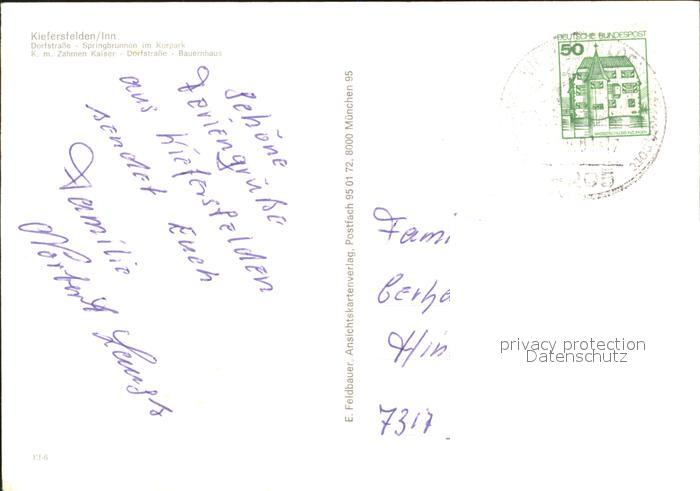 Kiefersfelden/Inn
Dorfstraße - Springbrunnen im Kurpark
K. m. Zahmen Kaiser - Dorfstraße - Bauernhaus
Schöne
Feriengrüße
aus Kiefersfelden
sendet Euch
Familie
Norbert
E. Feldbauer, Ansichtskartenverlag, Postfach 95 01 72, 8000 München 95
DEUTSCHE BUNDESPOST
50
Fami
Gerha
Hin
7317
privacy protection
Datenschutz